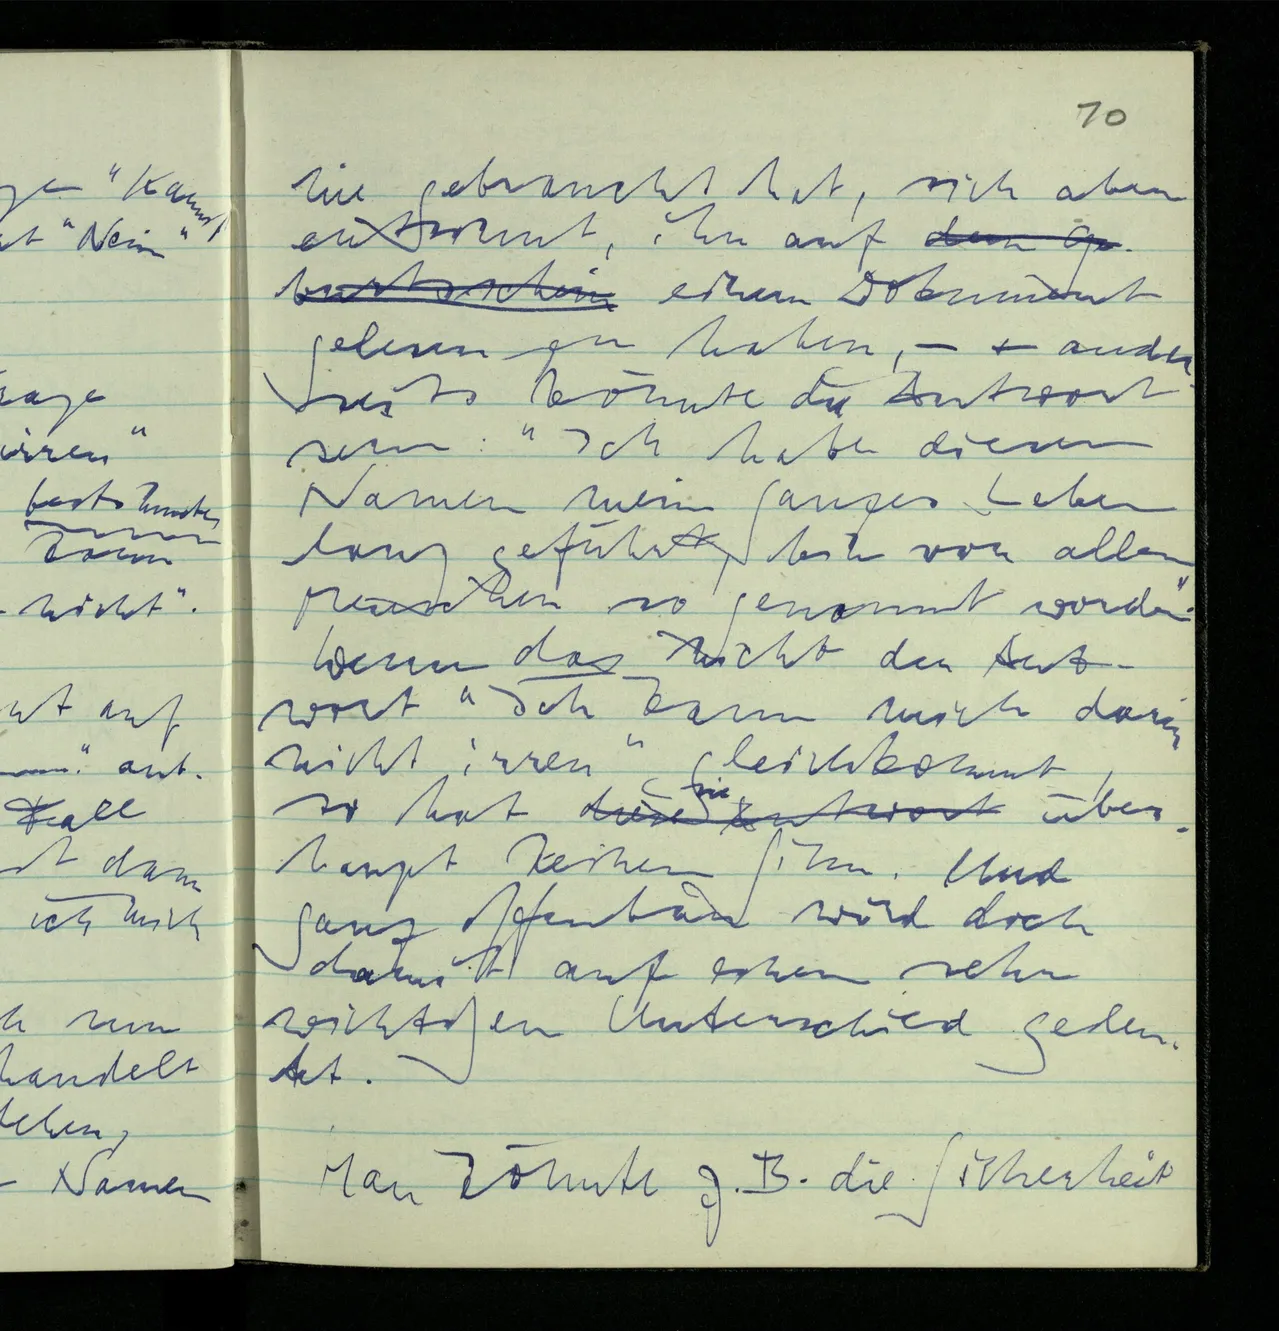 "Kannst
"Nein"
irren"
bestimmten
kann
nicht".
auf
ant-
Fall
dann
ich mich
nun
handelt
Namen
70
nie gebraucht hat, sich aber
entsinnt, ihn auf dem Ge-
burtsschein einem Dokument
gelesen zu haben, – ander-
seits könnte die Antwort
sein: "Ich habe diesen
Namen mein ganzes Leben
lang geführt, bin von allen
Menschen so genannt worden".
Wenn das nicht der Ant-
wort "Ich kann mich darin
nicht irren" gleichkommt,
sie
so hat diese Antwort über-
haupt keinen Sinn. Und
ganz offenbar wird doch
damit auf einen sehr
wichtigen Unterschied gedeu-
tet.
Man könnte z.B. die Sicherheit